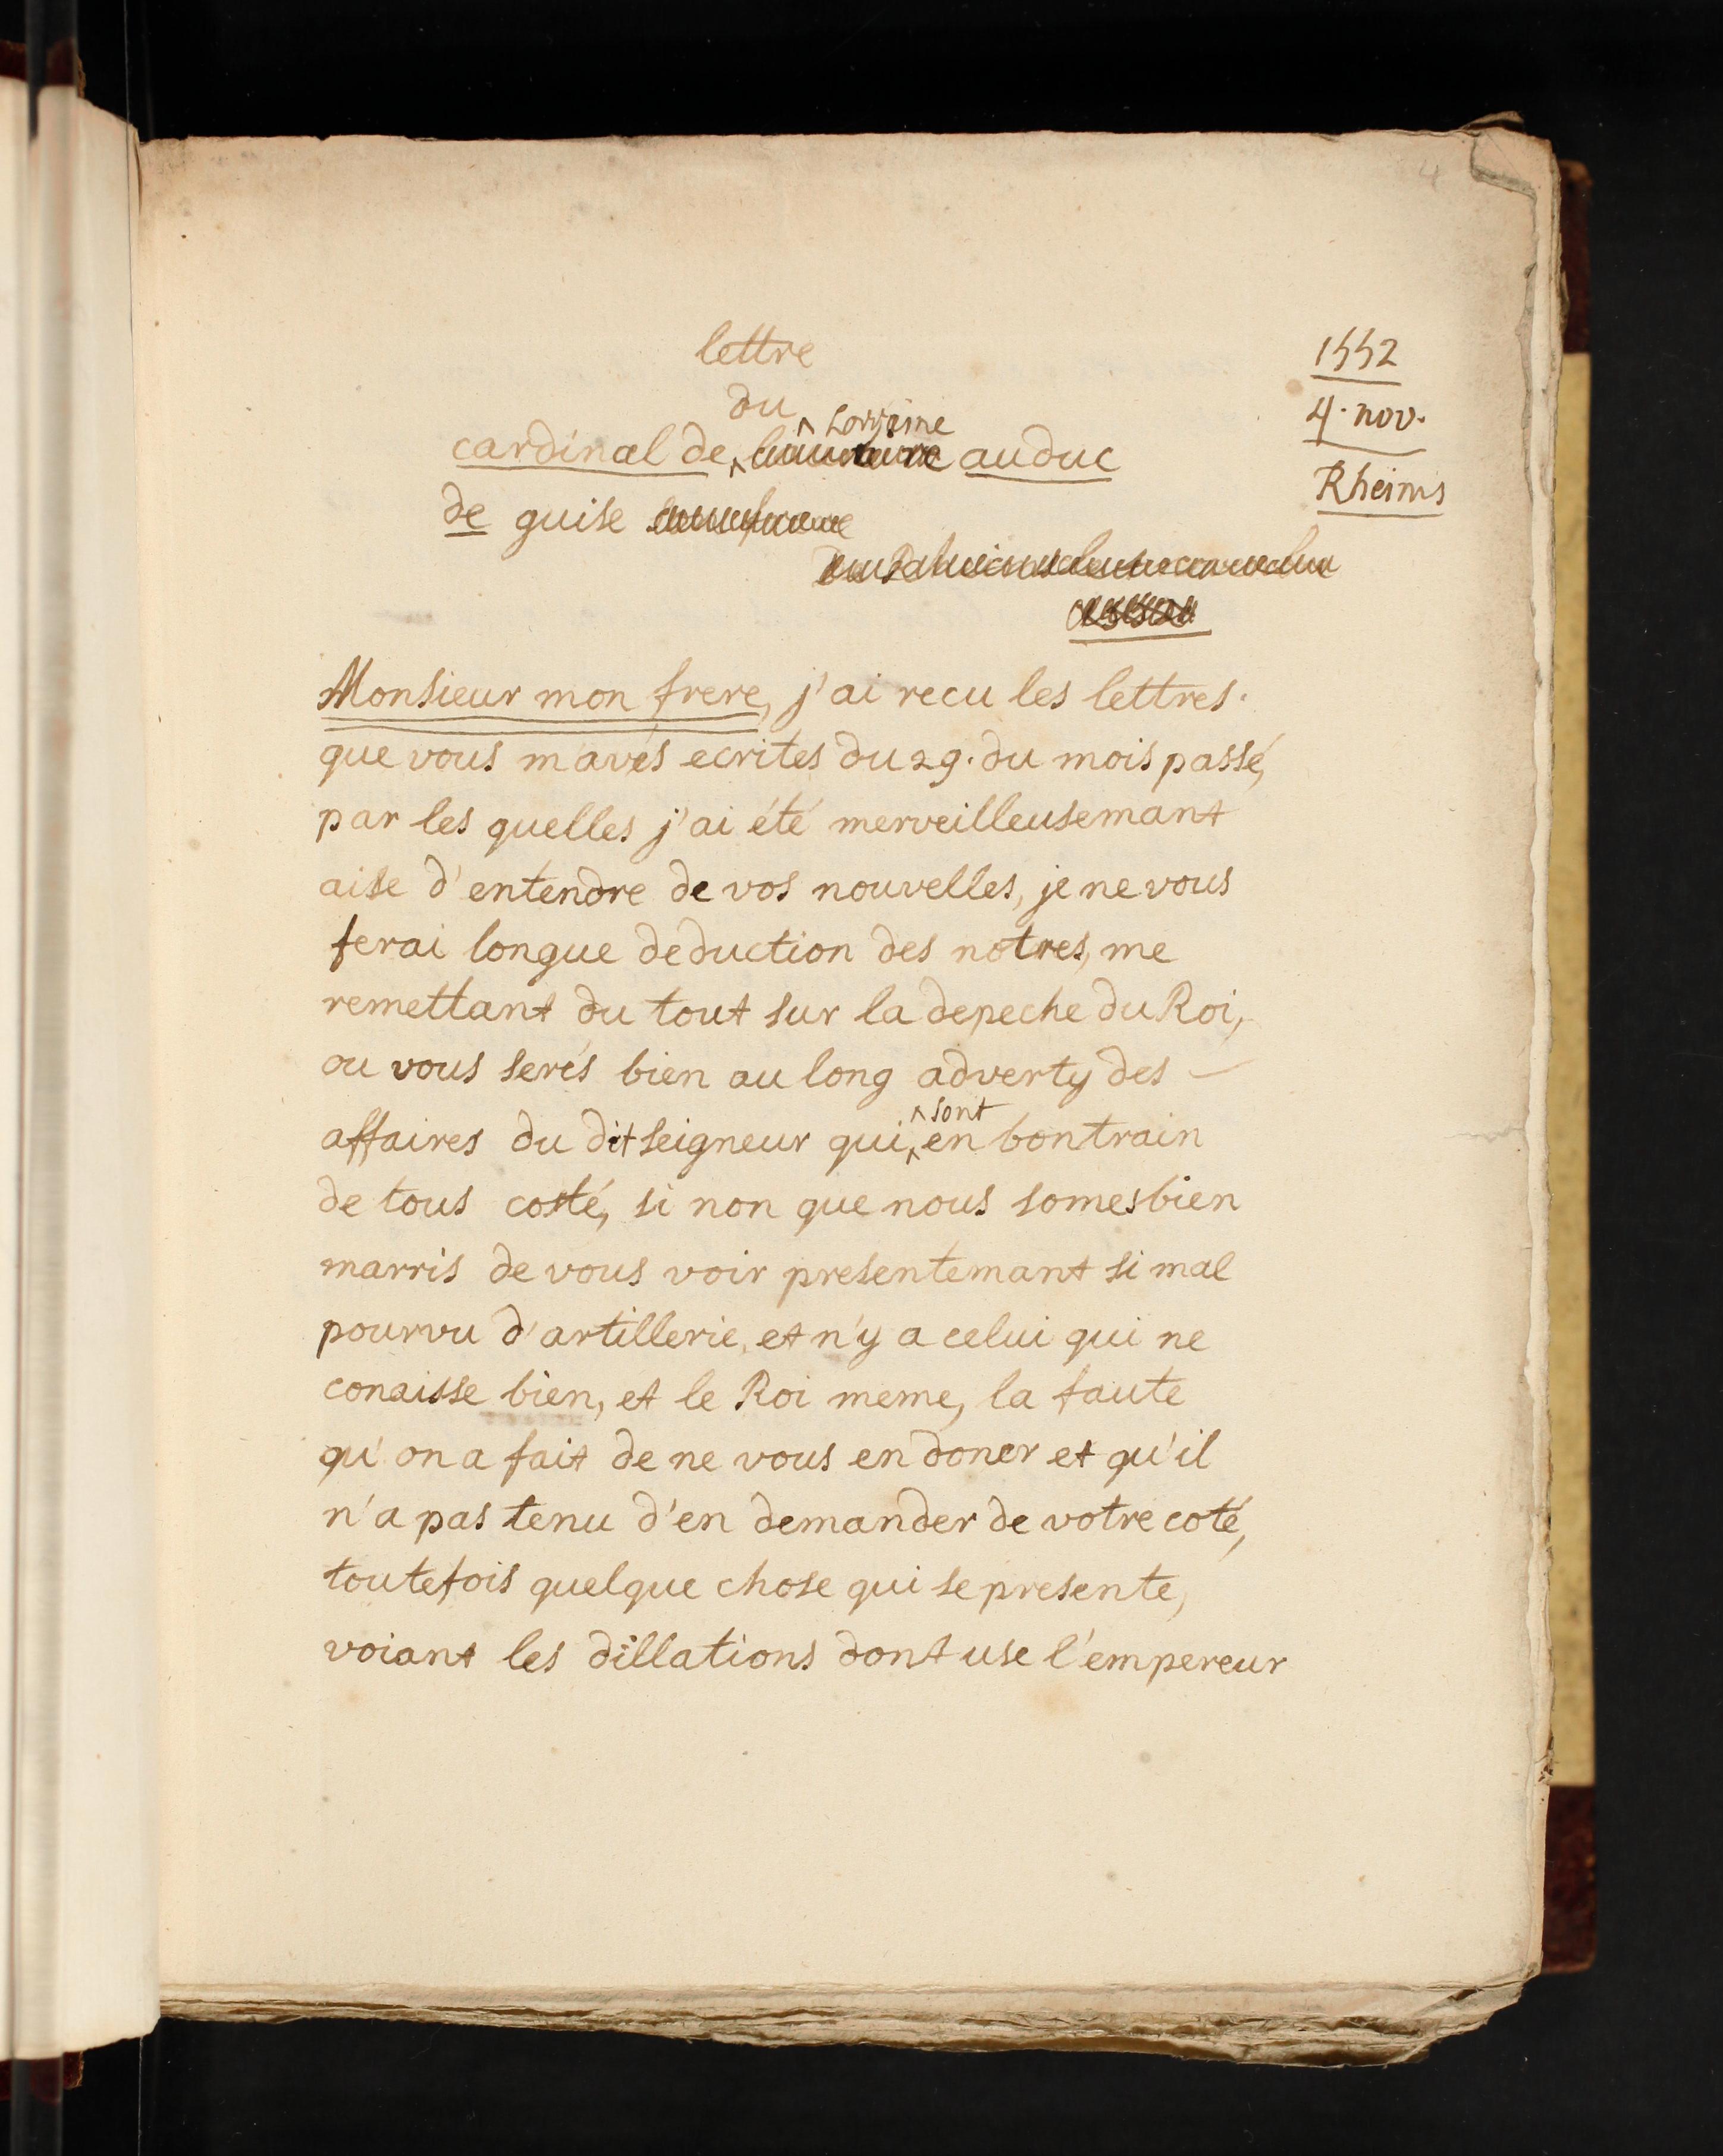 4
lettre
du
Lorraine
cardinal de au duc
de guise
1552
4. nov.
Rheims
Monsieur mon frere, j'ai recu les lettres.
que vous m'avés ecrites du 29. du mois passé,
par les quelles j'ai été merveilleusemant
aise d'entendre de vos nouvelles, je ne vous
ferai longue deduction des notres, me
remettant du tout sur la depeche du Roi,
ou vous serés bien au long adverty des
sont
affaires du dit seigneur qui en bon train
de tous costé, si non que nous somes bien
marris de vous voir presentemant si mal
pourvu d'artillerie, et n'y a celui qui ne
conaisse bien, et le Roi meme, la faute
qu'on a fait de ne vous en doner et qu'il
n'a pas tenu d'en demander de votre coté,
toutefois quelque chose qui se presente,
voiant les dillations dont use l'empereur